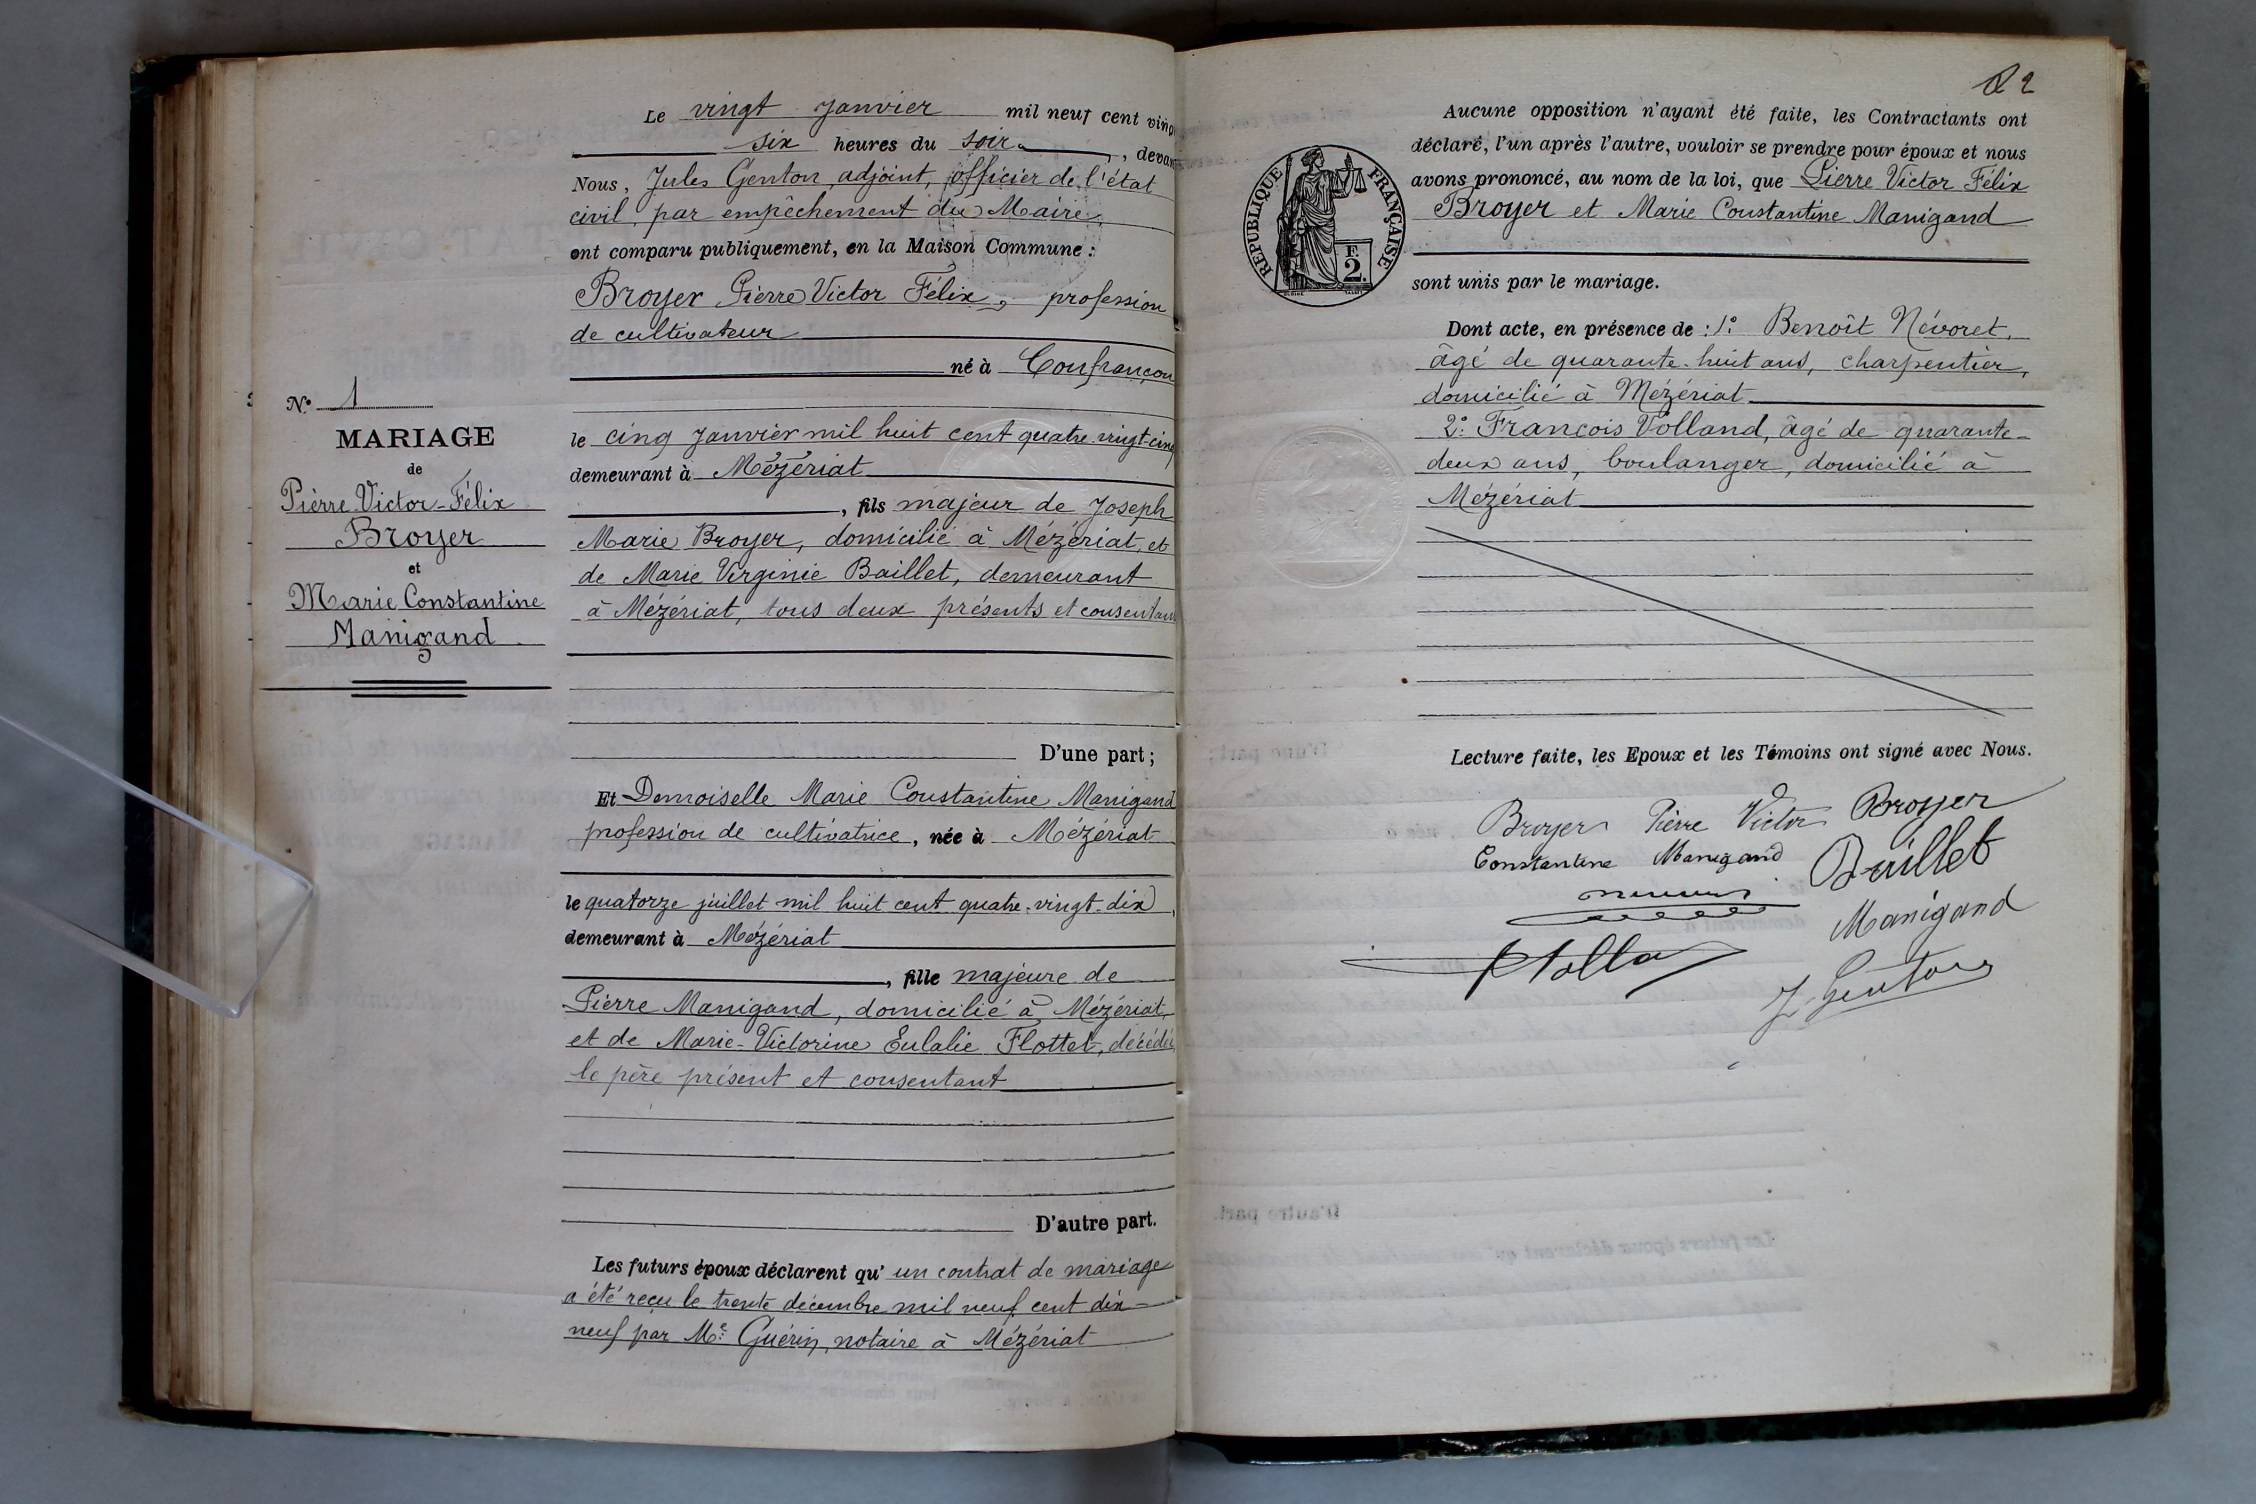 Le vingt Janvier mil neuf cent vingt
six heures du soir, devant
Nous, Jules Genton, adjoint, officier de l'état
civil, par empêchement du Maire,
ont comparu publiquement, en la Maison Commune :
Broyer Pierre Victor Félix, profession
de cultivateur
né à Confrançon
le cinq Janvier mil huit cent quatre-vingt-cinq
demeurant à Mézériat
, fils majeur de Joseph
Marie Broyer, domicilié à Mézériat, et
de Marie Virginie Baillet, demeurant
à Mézériat, tous deux présents et consentants
D'une part ;
Et Demoiselle Marie Constantine Manigand
profession de cultivatrice, née à Mézériat
le quatorze juillet mil huit cent quatre-vingt-dix,
demeurant à Mézériat
, fille majeure de
Pierre Manigand, domicilié à Mézériat,
et de Marie-Victorine Eulalie Flottet, décédée
le père présent et consentant
D'autre part.
Les futurs époux déclarent qu' un contrat de mariage
a été reçu le trente décembre mil neuf cent dix-
neuf par Me Guérin, notaire à Mézériat
N° 1
MARIAGE
de
Pierre Victor-Félix
Broyer
et
Marie Constantine
Manigand
2
Aucune opposition n'ayant été faite, les Contractants ont
déclaré, l'un après l'autre, vouloir se prendre pour époux et nous
avons prononcé, au nom de la loi, que Pierre Victor Félix
Broyer et Marie Constantine Manigand
sont unis par le mariage.
RÉPUBLIQUE FRANÇAISE
F.
2.
Dont acte, en présence de : 1° Benoît Névoret,
âgé de quarante-huit ans, charpentier,
domicilié à Mézériat
2° François Volland, âgé de quarante-
deux ans, boulanger, domicilié à
Mézériat
Lecture faite, les Epoux et les Témoins ont signé avec Nous.
Broyer Pierre Victor Broyer
Constantine Manigand Baillet
Manigand
J. Genton